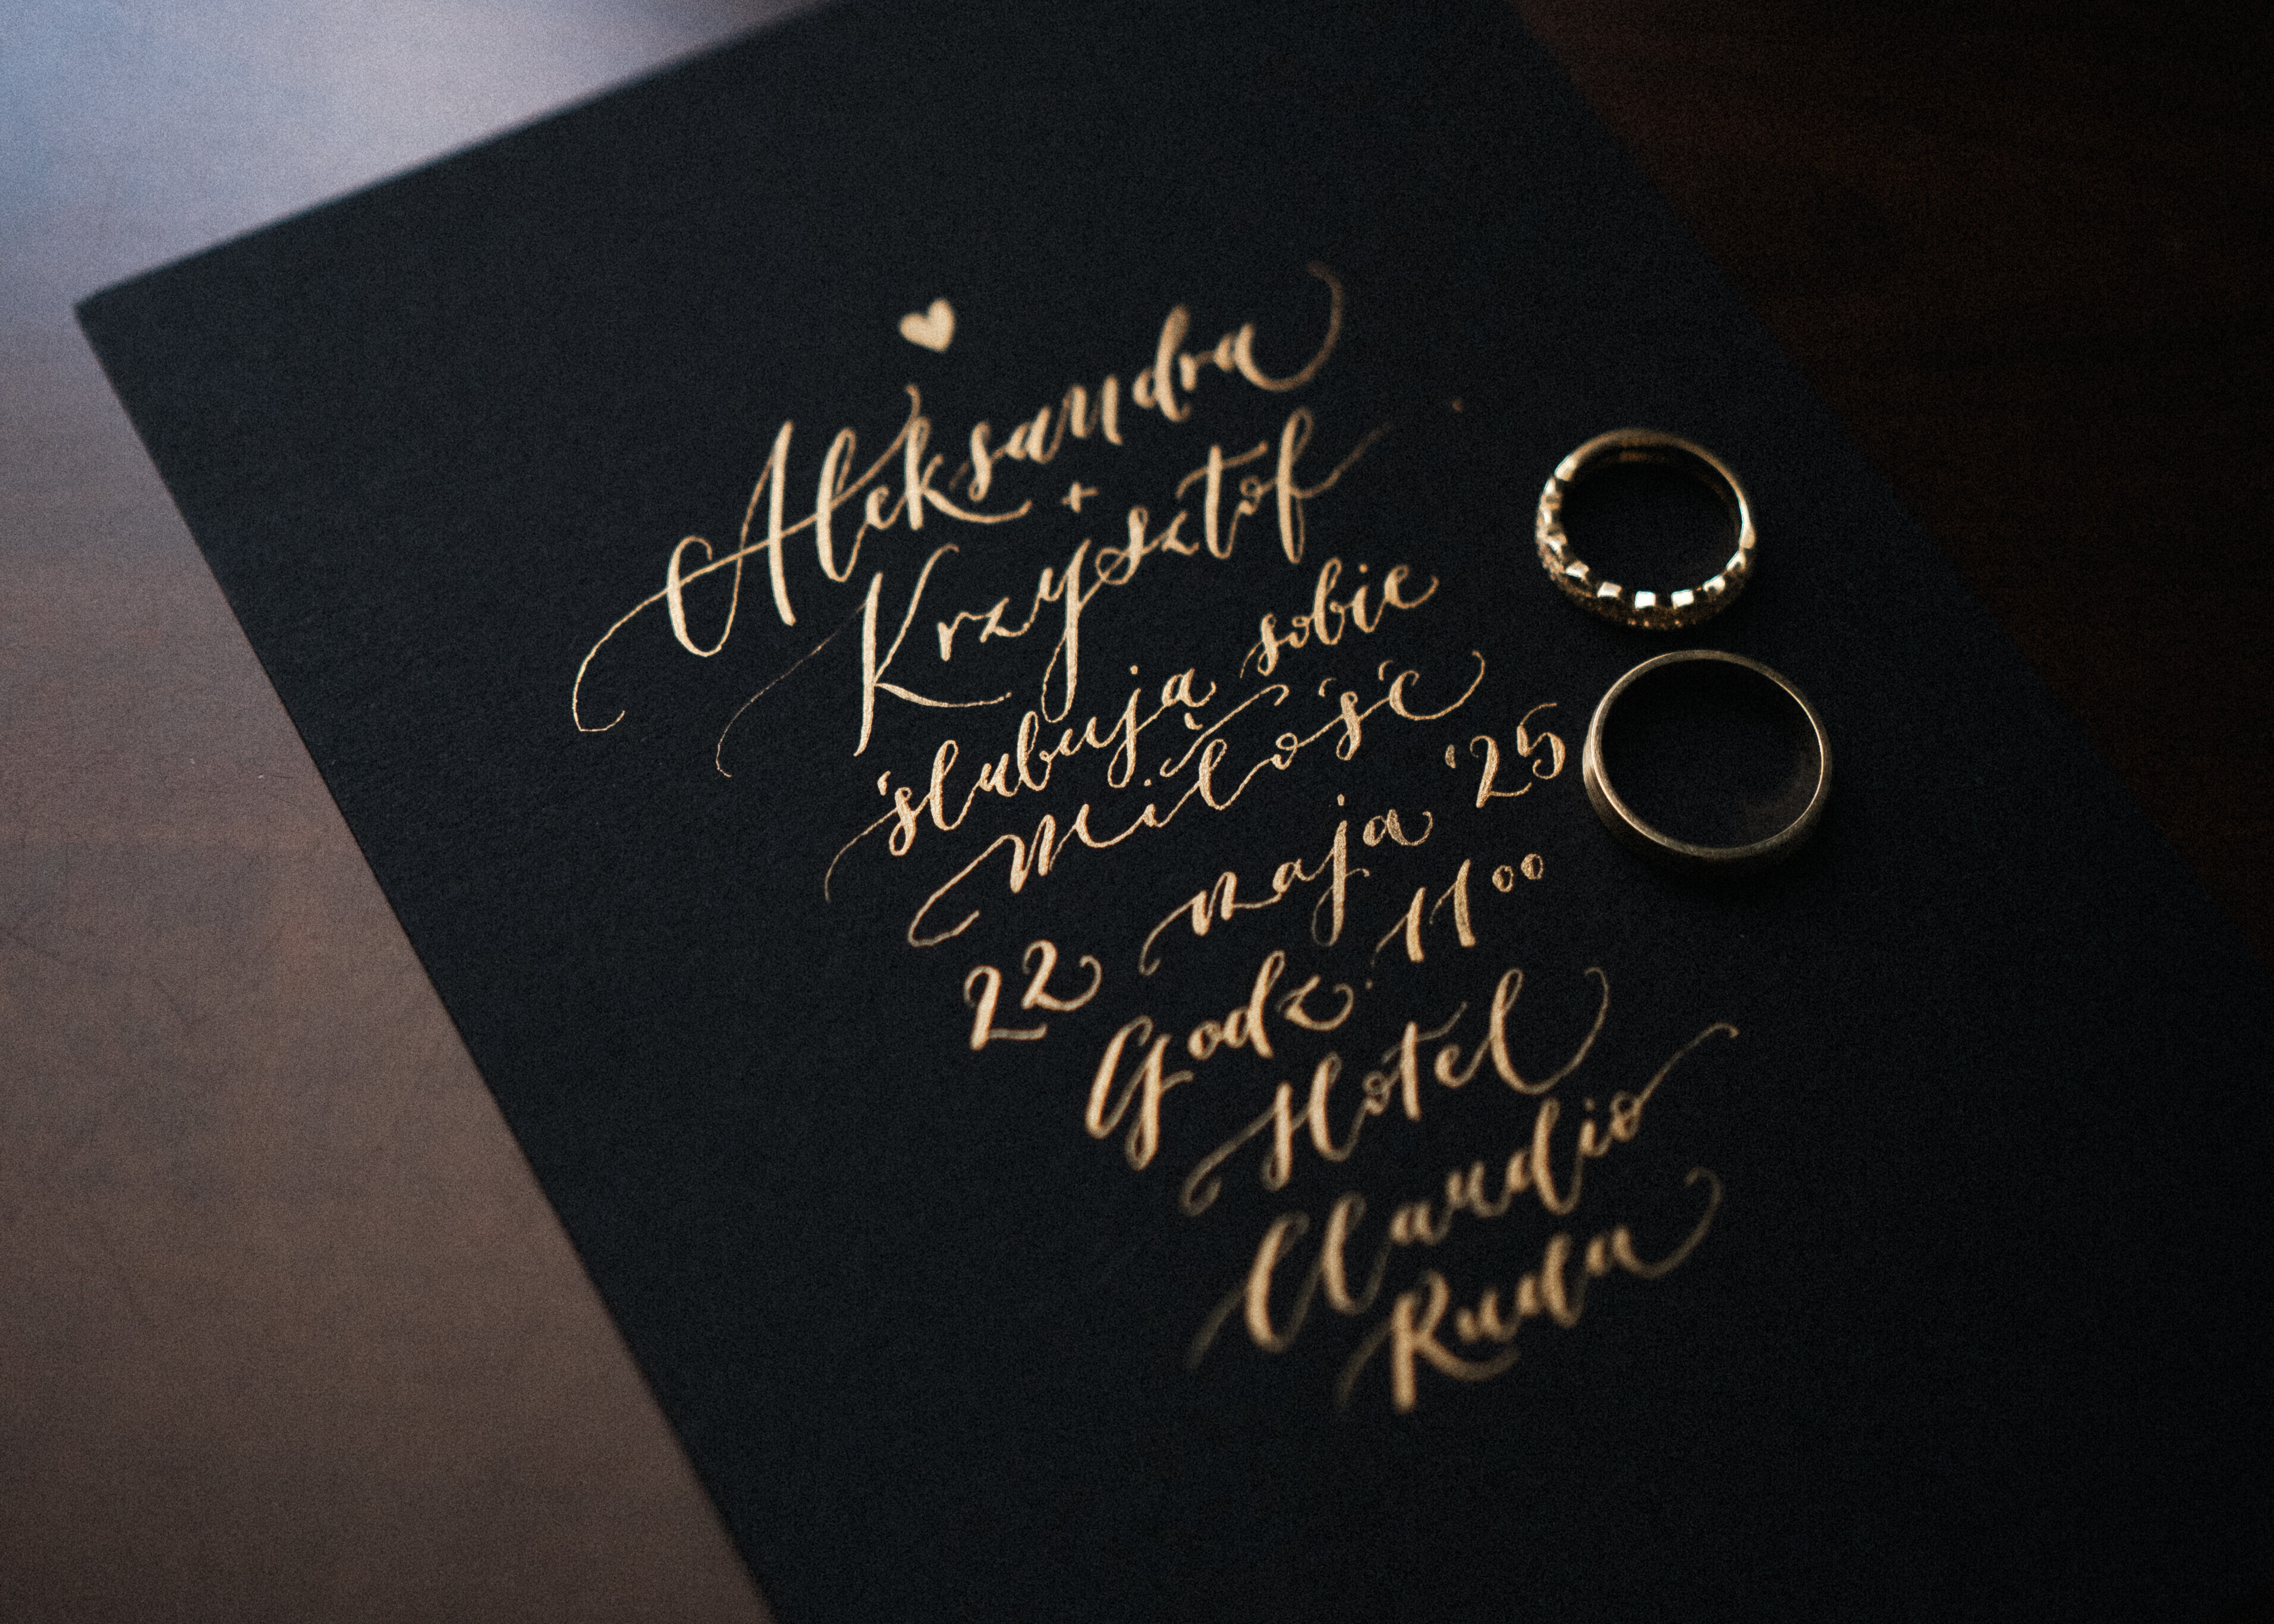 Aleksandra
+
Krzysztof
ślubują sobie
Miłość
22 maja '25
Godz. 11⁰⁰
Hotel
Claudio
Ruda